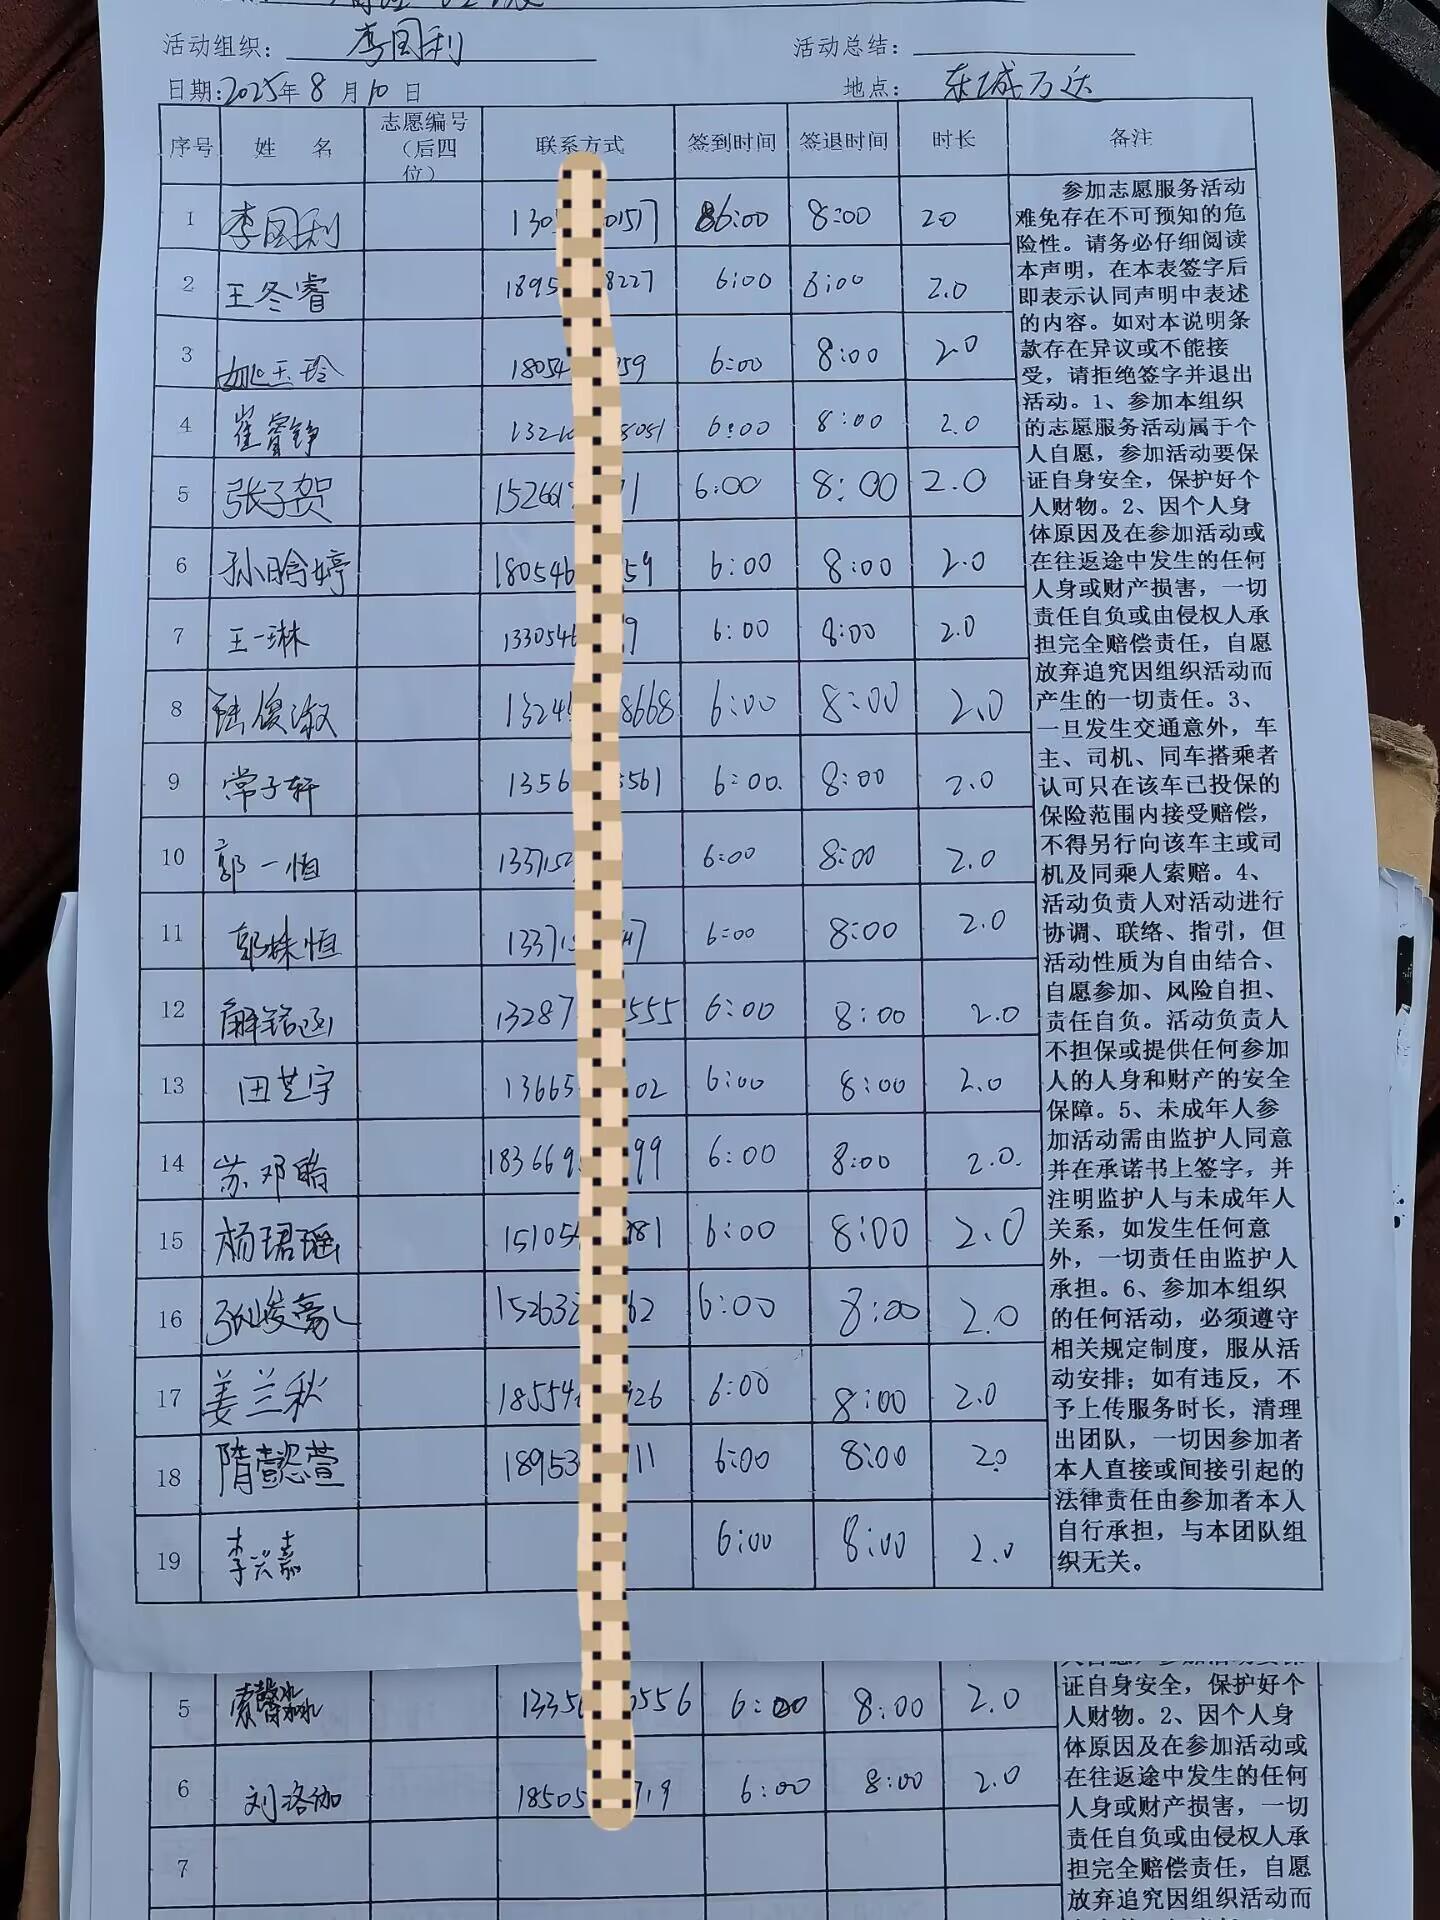 活动组织: 李国利 活动总结:
日期:2025年8月10日 地点: 东城万达
序号 姓 名 志愿编号（后四位） 联系方式 签到时间 签退时间 时长 备注
1 李国利 130 0157 6:00 8:00 2.0
2 王冬睿 1895 8227 6:00 8:00 2.0
3 姚玉玲 18054 59 6:00 8:00 2.0
4 崔睿铮 1321 5051 6:00 8:00 2.0
5 张子贺 152661 1 6:00 8:00 2.0
6 孙晗婷 180546 59 6:00 8:00 2.0
7 王一琳 1330546 9 6:00 8:00 2.0
8 陆俊淑 1324 8668 6:00 8:00 2.0
9 常子轩 1356 5561 6:00. 8:00 2.0
10 郭一恒 133715 6:00 8:00 2.0
11 郭姝恒 1337 47 6:00 8:00 2.0
12 解铭函 13287 555 6:00 8:00 2.0
13 田芝宇 13665 02 6:00 8:00 2.0
14 苏邓晗 183669 99 6:00 8:00 2.0.
15 杨珺瑶 15105 81 6:00 8:00 2.0
16 张峻豪 152632 62 6:00 8:00 2.0
17 姜兰秋 18554 26 6:00 8:00 2.0
18 隋懿萱 18953 11 6:00 8:00 2.0
19 李兴嘉 6:00 8:00 2.0
参加志愿服务活动
难免存在不可预知的危
险性。请务必仔细阅读
本声明，在本表签字后
即表示认同声明中表述
的内容。如对本说明条
款存在异议或不能接
受，请拒绝签字并退出
活动。1、参加本组织
的志愿服务活动属于个
人自愿，参加活动要保
证自身安全，保护好个
人财物。2、因个人身
体原因及在参加活动或
在往返途中发生的任何
人身或财产损害，一切
责任自负或由侵权人承
担完全赔偿责任，自愿
放弃追究因组织活动而
产生的一切责任。3、
一旦发生交通意外，车
主、司机、同车搭乘者
认可只在该车已投保的
保险范围内接受赔偿，
不得另行向该车主或司
机及同乘人索赔。4、
活动负责人对活动进行
协调、联络、指引，但
活动性质为自由结合、
自愿参加、风险自担、
责任自负。活动负责人
不担保或提供任何参加
人的人身和财产的安全
保障。5、未成年人参
加活动需由监护人同意
并在承诺书上签字，并
注明监护人与未成年人
关系，如发生任何意
外，一切责任由监护人
承担。6、参加本组织
的任何活动，必须遵守
相关规定制度，服从活
动安排；如有违反，不
予上传服务时长，清理
出团队，一切因参加者
本人直接或间接引起的
法律责任由参加者本人
自行承担，与本团队组
织无关。
5 索馨淼 1335 0556 6:00 8:00 2.0
6 刘洛伽 18505 719 6:00 8:00 2.0
7
证自身安全，保护好个
人财物。2、因个人身
体原因及在参加活动或
在往返途中发生的任何
人身或财产损害，一切
责任自负或由侵权人承
担完全赔偿责任，自愿
放弃追究因组织活动而